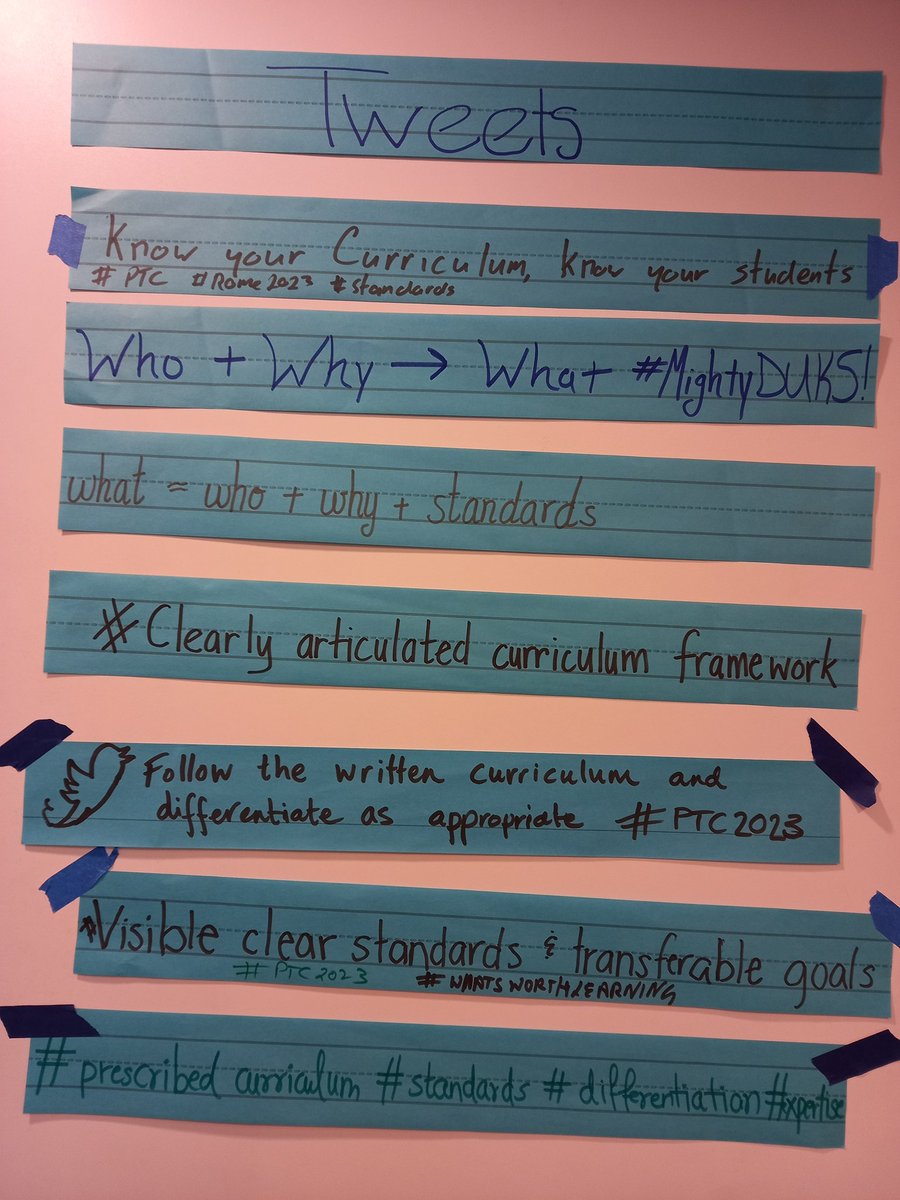 Tweets
Know your Curriculum, know your students
# PTC #Rome2023 #standards
Who + Why → What #MightyDUKS!
what = who + why + standards
#Clearly articulated curriculum framework
Follow the written curriculum and
differentiate as appropriate #PTC2023
#Visible clear standards & transferable goals
# PTC2023 # WHATSWORTHLEARNING
# prescribed curriculum # standards # differentiation #expertise